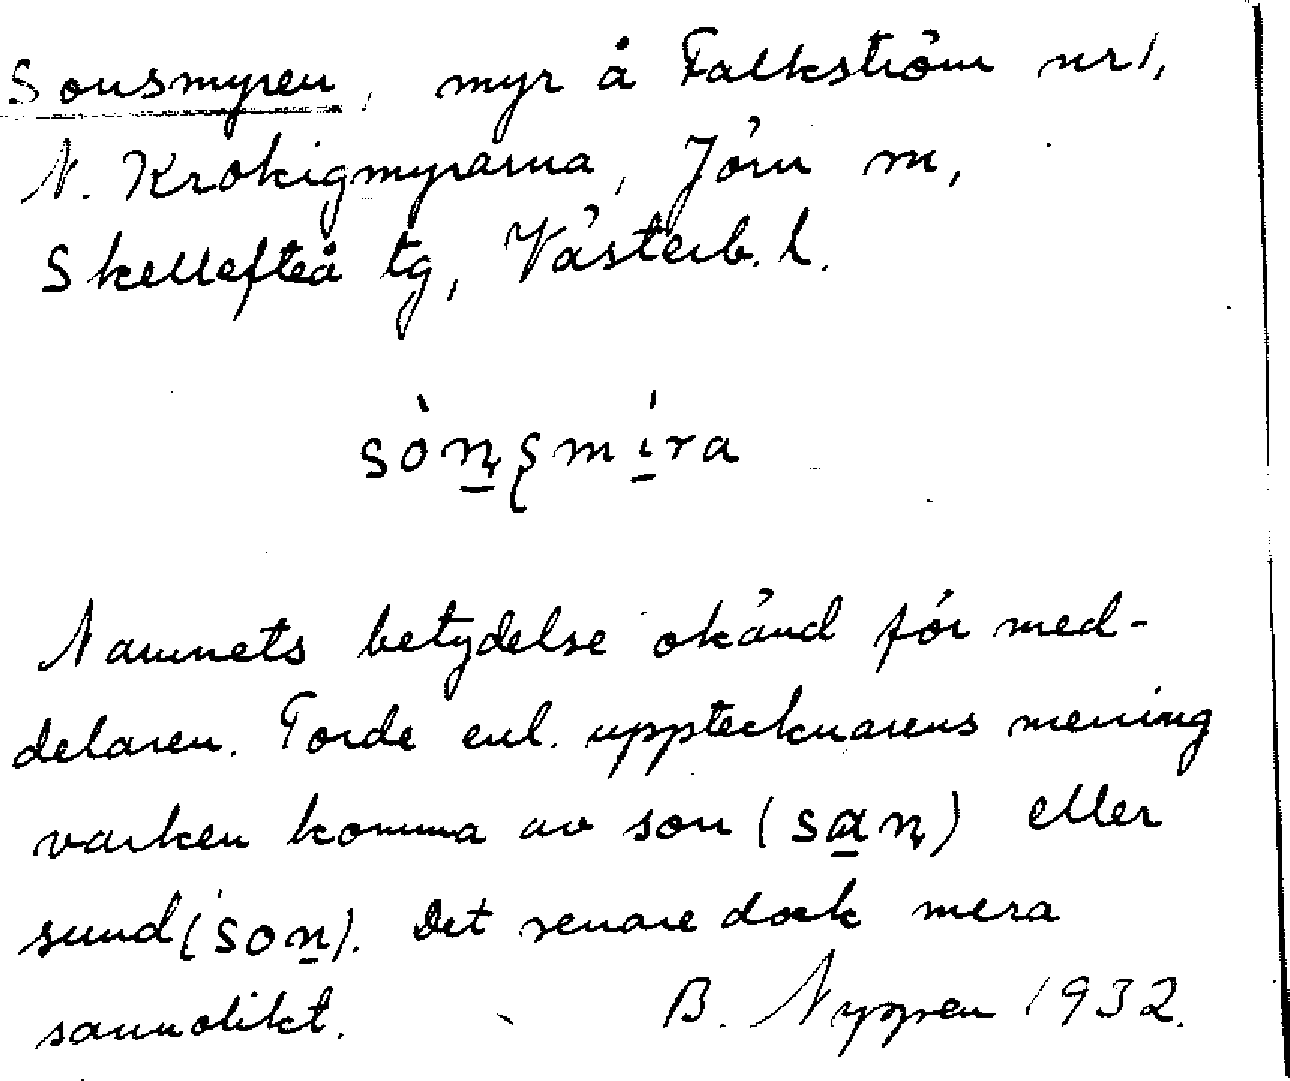 Sonsmyren, myr å Falkström nr 1,
N. Krokigmyrarna, Jörn m,
Skellefteå tg, Västerb. l.
sòn̲ʂmí̲ra
Namnets betydelse okänd för med-
delaren. Torde enl. upptecknarens mening
varken komma av son (sa̲ɳ) eller
sund (son̲). Det senare dock mera
sannolikt. B. Nygren 1932.